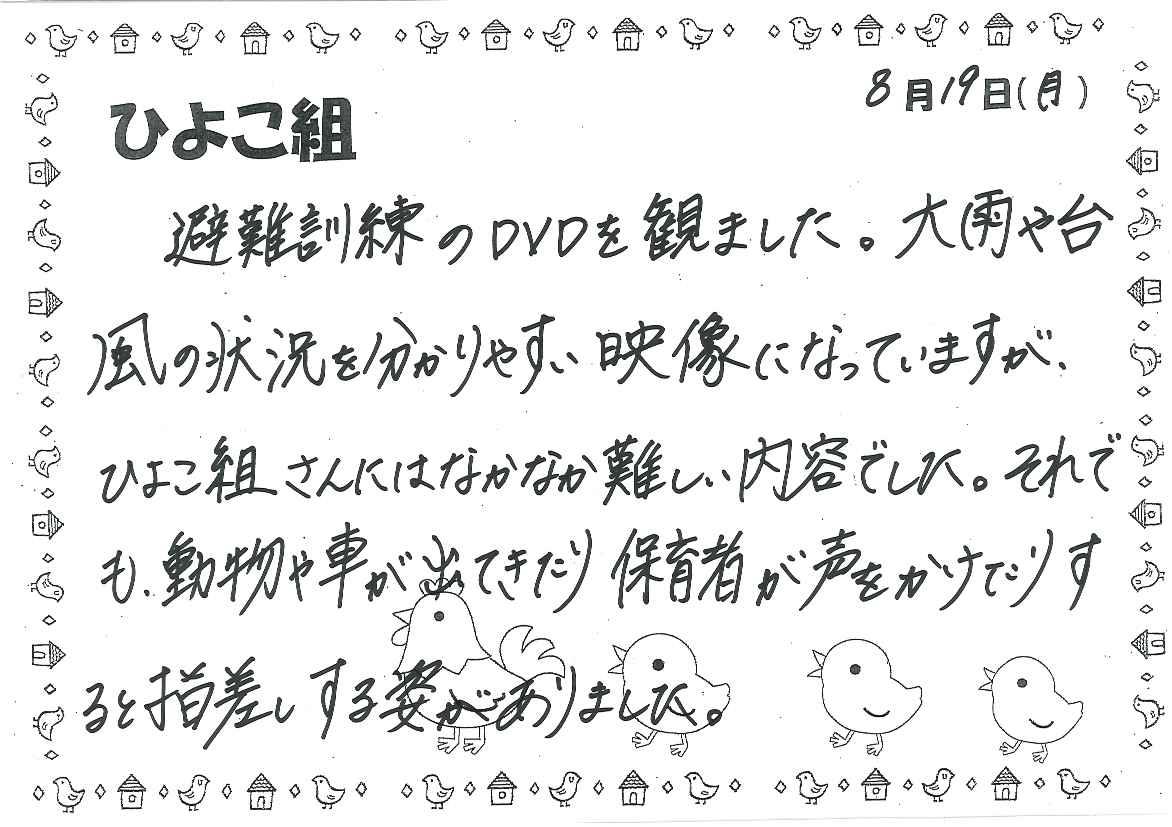 8月19日(月)
ひよこ組
避難訓練のDVDを観ました。大雨や台
風の状況を分かりやすい映像になっていますが、
ひよこ組さんにはなかなか難しい内容でした。それで
も、動物や車が出てきたり保育者が声をかけたりす
ると指差しする姿がありました。